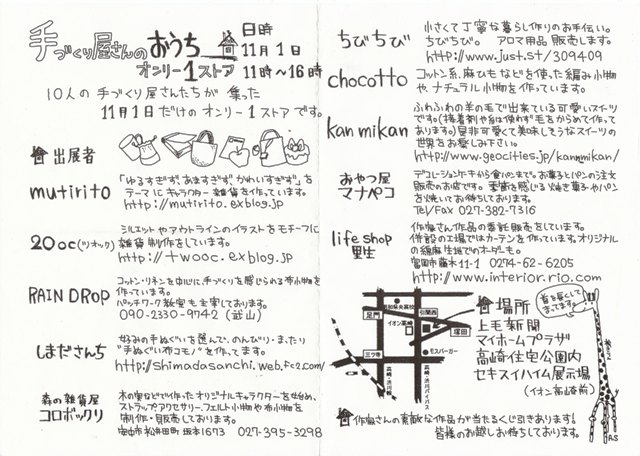 手づくり屋さんのおうち
オンリー1ストア
日時
11月1日
11時〜16時
10人の手づくり屋さんたちが集った
11月1日だけのオンリー1ストアです。
出展者
mutirito
「ゆるすぎず、あますぎず、かわいすぎず」を
テーマにキャラクター雑貨を作っています。
http://mutirito.exblog.jp
20cc(ツオック)
シルエットやアウトラインのイラストをモチーフに
雑貨制作をしています。
http://twooc.exblog.jp
RAIN DROP
コットン・リネンを中心に、手づくりを感じられる布小物を
作っています。
パッチワーク教室も主宰しております。
090-2330-9742 (武山)
しまださんち
好みの手ぬぐいを選んで、のんびり・まったり
"手ぬぐい布コモノ"を作ってます。
http://shimadasanchi.web.fc2.com/
森の雑貨屋
コロボックリ
木の実などで作ったオリジナルキャラクターを始め、
ストラップ、アクセサリー、フェルト小物や布小物を
制作・販売しております。
安中市松井田町坂本1673 027-395-3298
ちびちび
小さくて丁寧な暮らし作りのお手伝い。
ちびちび。 アロマ用品販売します。
http://www.just.st/309409
chocotto
コットン糸、麻ひもなどを使った編み小物
や、ナチュラル小物を作っています。
kanmikan
ふわふわの羊の毛で出来ている可愛いスイーツ
です。(接着剤や糸は使わず毛をからめて作って
あります。)是非可愛くて美味しそうなスイーツの
世界をお愛しみ下さい。
http://www.geocities.jp/kanmikan/
おやつ屋
マナペコ
デコレーションケーキから食パンまで。お菓子とパンの注文
販売のお店です。季節を感じる焼き菓子やパン
を焼いてお待ちしております。
Tel/Fax 027-382-7316
life shop
里生
作家さん作品の委託販売をしています。
併設の工場ではカーテンを作っています。オリジナル
の綿麻生地でのオーダーも。
富岡市藤木11-1 0274-62-6205
http://www.interior.rio.com
首を長くして
まってます。
足門
引間西
塚田
イオン高崎
三ツ寺
モスバーガー
高崎・渋川線
高崎・渋川バイパス
場所
上毛新聞
マイホームプラザ
高崎住宅公園内
セキスイハイム展示場
(イオン高崎前)
作家さんの素敵な作品が当たるくじ引きあります!
皆様のお越しお待ちしております。